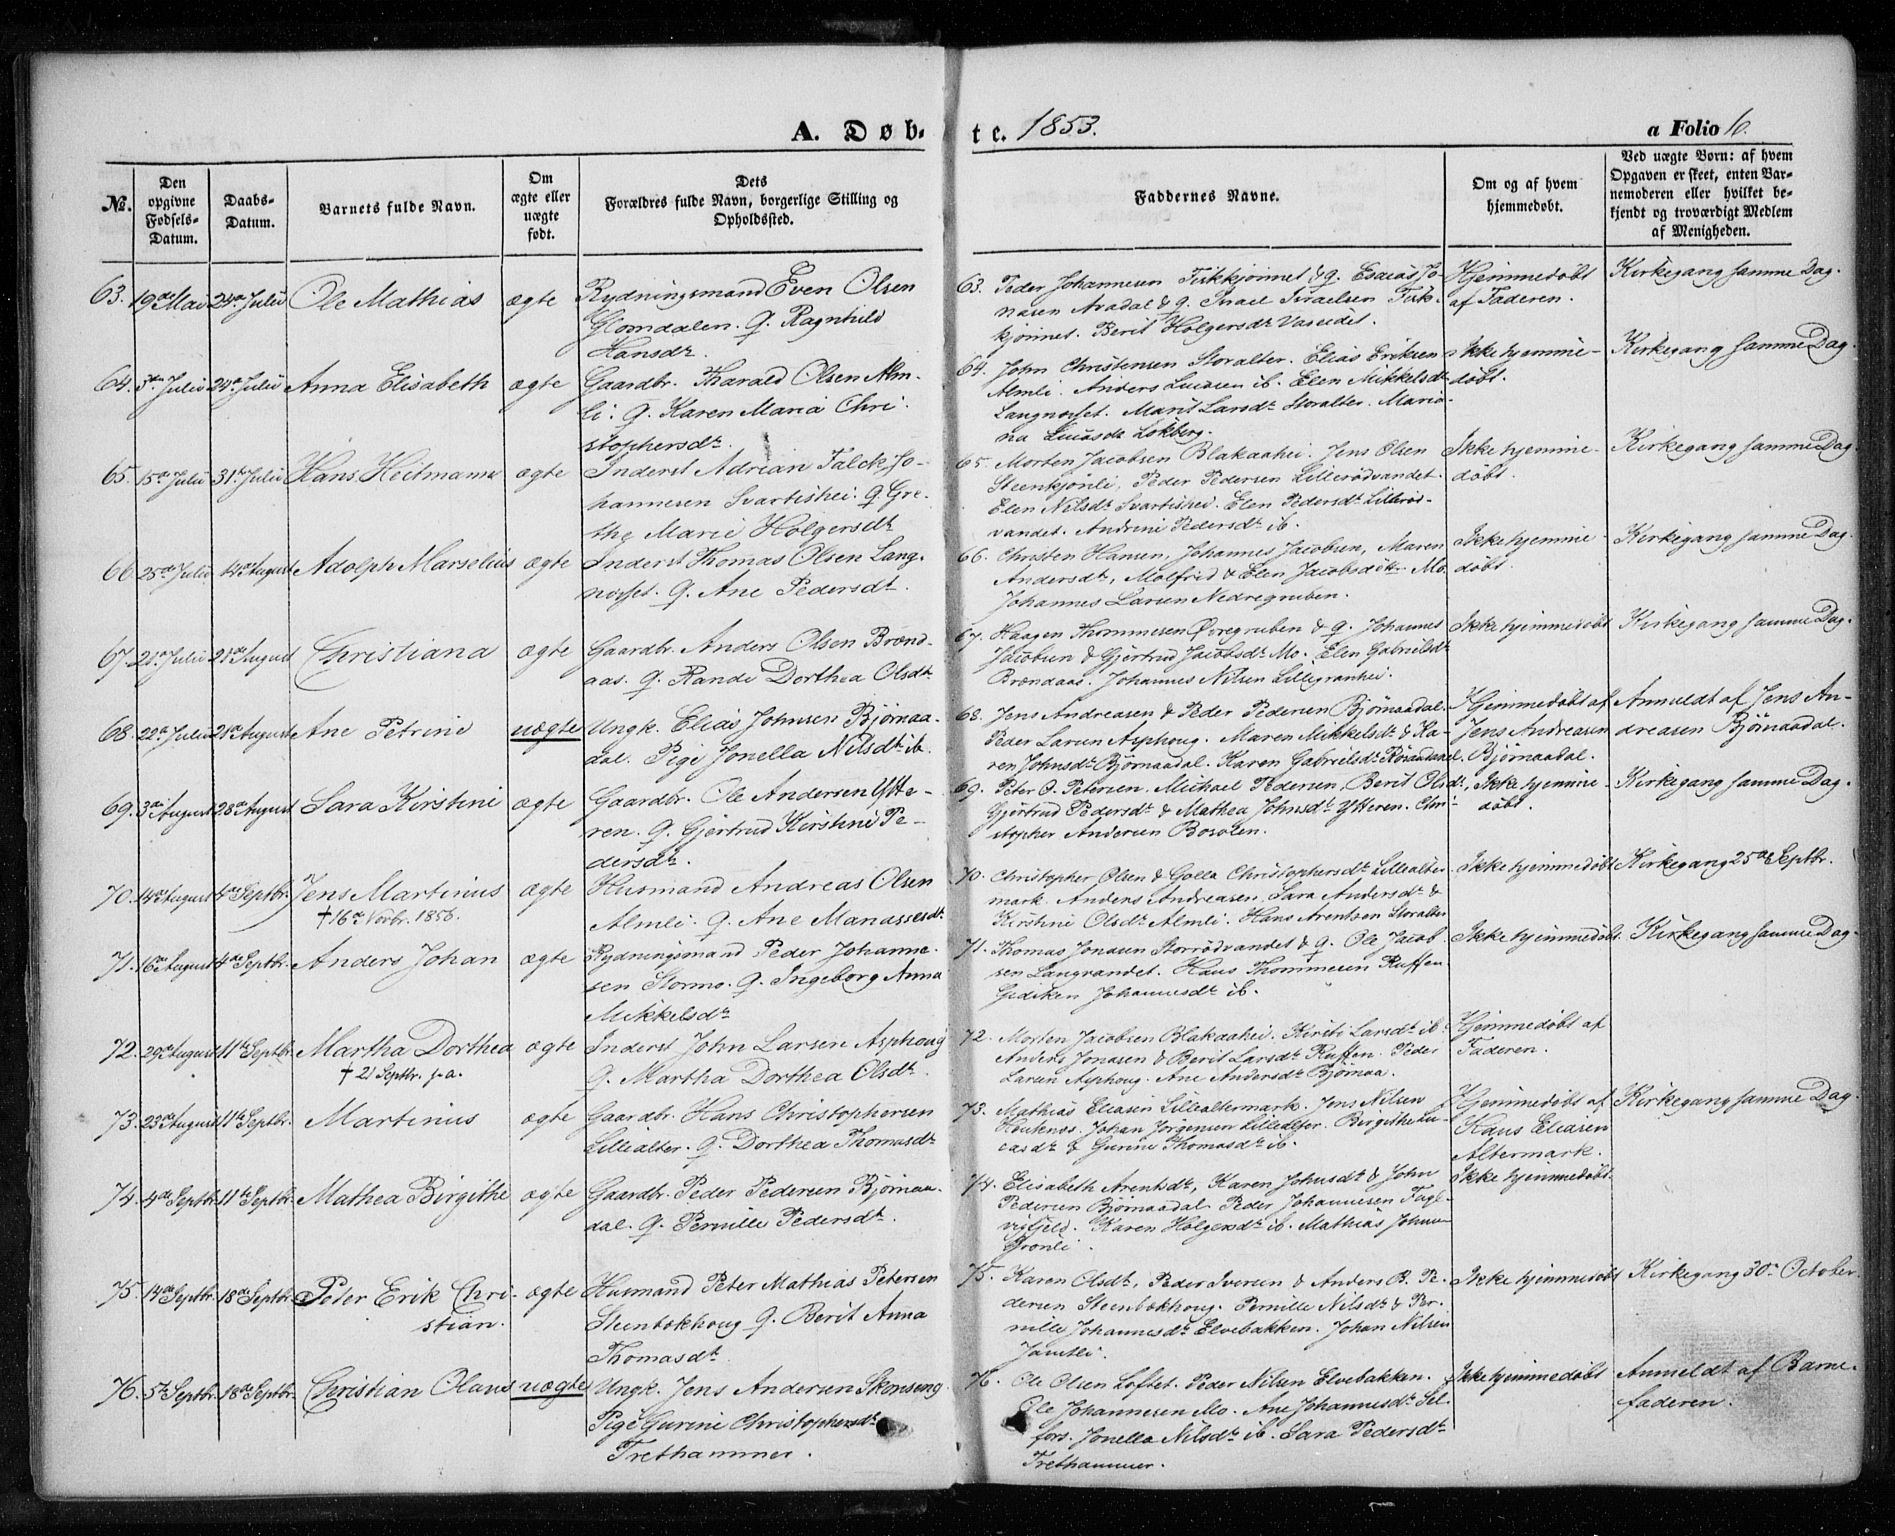 A. Døb-
te. 1853.
a Folio 6.
No.
Den opgivne Fødsels-Datum.
Daabs-Datum.
Barnets fulde Navn.
Om ægte eller uægte født.
Dets Forældres fulde Navn, borgerlige Stilling og Opholdssted.
Faddernes Navne.
Om og af hvem hjemmedøbt.
Ved uægte Børn: af hvem Opgaven er skeet, enten Barnemoderen eller hvilket bekjendt og troværdigt Medlem af Menigheden.
63. 19de Mai 24de Julii Ole Mathias ægte Rydningsmand Even Olsen
Glomdalen. Q. Ragnhild
Hansdr.
63. Peder Johannesen Fiskkjønnet & Q. Esaias Jo-
nasen Avadal & Q. Israel Israelsen Fisk-
kjønnet. Berit Holgersdr Vaseidet.
Hjemmedøbt
af Faderen.
Kirkegang samme Dag.
64. 3die Julii 24de Julii Anna Elisabeth ægte Gaardbr. Harald Olsen Alm-
li. Q. Karen Maria Chri-
stophersdr.
64. John Christensen Storalter. Elias Eriksen
Almli. Anders Luiasen ib. Elen Mikkelsdr
Langnæsset. Marit Larsdr Storalter. Maria-
na Luiasdr Løkberg.
Ikke hjemme-
døbt.
Kirkegang samme Dag.
65. 15de Julii 31te Julii Hans Heitmann ægte Inderst Adrian Falck Jo-
hannesen Svartishei. Q. Gre-
the Marie Holgersdr
65. Morten Jacobsen Blakaahei. Jens Olsen
Steenkjønli, Peder Pedersen Lillerødvandet.
Elen Nilsdr Svartishei. Elen Pedersdr Lillerød-
vandet. Andrine Pedersdr ib.
Ikke hjemme-
døbt.
Kirkegang samme Dag.
66. 25de Julii 14de August Adolph Marselius ægte Inderst Thomas Olsen Lang-
næsset. Q. Ane Pedersdr.
66. Christen Hansen, Johannes Jacobsen, Maren
Andersdr, Molfrid & Elen Jacobsdtr Mo.
Johannes Larsen Nedregruben.
Ikke hjemme-
døbt.
Kirkegang samme Dag.
67. 21de Julii 21de August Christiana ægte Gaardbr. Anders Olsen Brænd-
aas. Q. Randi Dorthea Olsdr.
67. Haagen Thommesen Øvregruben & Q. Johannes
Jacobsen & Gjertrud Jacobsdr Mo. Elen Gabrielsdr
Brændaas. Johannes Nilsen Lillegranhei.
Ikke hjemmedøbt
Kirkegang samme Dag.
68. 22de Julii 21de August Ane Petrine uægte Ungk. Elias Johnsen Bjørnaa-
dal. Pige Jonella Nilsdr ib.
68. Jens Andreasen & Peder Pedersen Bjørnaadal.
Peder Larsen Asphoug. Maren Mikkelsdr & Ka-
ren Johnsdr Bjørnaadal. Karen Gabrielsdr
Hjemmedøbt af
Jens Andreasen
Bjørnaadal.
Anmeldt af Jens An-
dreasen Bjørnaadal.
69. 3die August 28de August Sara Kirstine ægte Gaardbr. Ole Andersen Ytte-
ren. Q. Gjertrud Kirstine Pe-
dersdr.
69. Peter O. Petersen. Michael Pedersen, Berit Olsdr,
Gjertrud Pedersdr & Mathea Johnsdr Ytteren. Chri-
stopher Andersen Bosolen.
Ikke hjemme-
døbt.
Kirkegang samme Dag.
70. 14de August 4de Septbr. Jens Martinus ægte Husmand Andreas Olsen
† 16de Novbr. 1856.
Almli. Q. Ane Manassesdr.
70. Christopher Olsen & Golla Christophersdr Lillealter-
mark. Anders Andreasen, Sara Andersdr &
Kirstine Olsdr Almli. Hans Arentsen Storalter
Ikke hjemmedøbt
Kirkegang 25de Septbr.
71. 16de August 4de Septbr. Anders Johan ægte Rydningsmand Peder Johanne-
sen Stormo. Q. Ingeborg Anna
Mikkelsdr
71. Thomas Jonasen Storrødvandet & Q. Ole Jacob-
sen Langvandet. Hans Thommesen Ruffen.
Gidiken Johannesdr ib.
Ikke hjemmedøbt.
Kirkegang samme Dag.
72. 29de August 11te Septbr. Martha Dorthea ægte Inderst John Larsen Asphoug
† 21 Septbr. s. a.
Q. Martha Dorthea Olsdr.
72. Morten Jacobsen Blakaahei. Kirsti Larsdr ib.
Anders Jonasen & Berit Larsdr Ruffen. Peder
Larsen Asphoug. Ane Andersdr Bjørnaa.
Hjemmedøbt af
Faderen.
73. 23de August 11te Septbr. Martinus ægte Gaardbr. Hans Christophersen
Lillealter. Q. Dorthea Thomasdr
73. Mathias Eliasen Lillealtermark. Jens Nilsen
Houknes. Johan Jørgensen Lillealter. Birgithe Lu-
casdr & Gurine Thomasdr ib.
Hjemmedøbt af
Hans Eliasen
Altermark.
Kirkegang samme Dag.
74. 4de Septbr. 11te Septbr. Mathea Birgithe ægte Gaardbr. Peder Pedersen Bjørnaa-
dal. Q. Pernille Pedersdr.
74. Elisabeth Arentsdr, Karen Johnsdr & John
Pedersen Bjørnaadal. Peder Johannesen Fagl-
vigfjeld. Karen Holgersdr ib. Mathias Johnsen
Grønli.
Ikke hjemmedøbt.
75. 14de Septbr. 18de Septbr. Peter Erik Chri-
stian.
ægte Husmand Peter Mathias Petersen
Steenbokhoug Q. Berit Anna
Thomasdr.
75. Karen Olsdr, Peder Iversen & Anders B. Pe-
dersen Steenbokhoug. Pernille Nilsdr & Per-
nille Johannesdr Elvebakken. Johan Nilsen
Jamtli.
Ikke hjemmedøbt
Kirkegang 30te October.
76. 5te Septbr. 18de Septbr. Christian Olaus uægte Ungk. Jens Andersen Skonseng
Pige Gurine Christophersdr
Trethammer.
76. Ole Olsen Loftet. Peder Nilsen Elvebakken.
Ole Johannesen Mo. Ane Johannesdr Sel-
fors. Jonella Nilsdr ib. Sara Pedersdr
Trethammer.
Ikke hjemmedøbt
Anmeldt af Barne-
faderen.